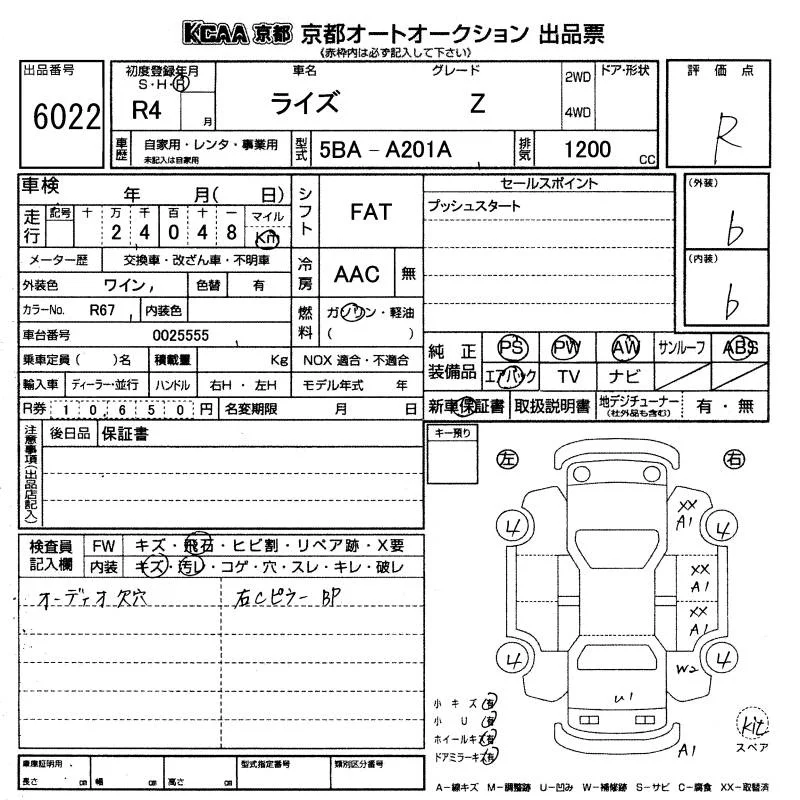 KCAA 京都 京都オートオークション 出品票
(赤枠内は必ず記入して下さい)
出品番号
6022
初度登録年月
S・H・R
R4 月
車名
ライズ
グレード
Z
2WD
4WD
ドア・形状
評価点
R
車歴
自家用・レンタ・事業用
未記入は自家用
型式
5BA - A201A
排気
1200 CC
車検 年 月( 日)
走行
記号 十 万 千 百 十 一 マイル
2 4 0 4 8 Km
シフト
FAT
セールスポイント
プッシュスタート
(外装)
b
(内装)
b
メーター歴 交換車・改ざん車・不明車
冷房
AAC 無
外装色 ワイン, 色替 有
カラーNo. R67 , 内装色
燃料
ガソリン・軽油
( )
車台番号 0025555
乗車定員( )名 積載量 Kg NOX 適合・不適合
輸入車 ディーラー・並行 ハンドル 右H・左H モデル年式 年
R券 10,650円 名変期限 月 日
純正装備品
PS PW AW サンルーフ ABS
エアバック TV ナビ
新車保証書 取扱説明書 地デジチューナー(社外品も含む) 有・無
注意事項(出品店記入)
後日品 保証書
キー預り
左 右
検査員記入欄
FW キズ・飛石・ヒビ割・リペア跡・X要
内装 キズ・汚レ・コゲ・穴・スレ・キレ・破レ
オーディオ欠穴
右Cピラー BP
XX
A1
4 4
XX
A1
XX
A1
4 4
W2
U1
A1
小キズ 有
小U 有
ホイールキズ 有
ドアミラーキズ 有
kit
スペア
車庫証明用、
長さ cm 幅 cm 高さ cm
型式指定番号
類別区分番号
A-線キズ M-調整跡 U-凹み W-補修跡 S-サビ C-腐食 XX-取替済